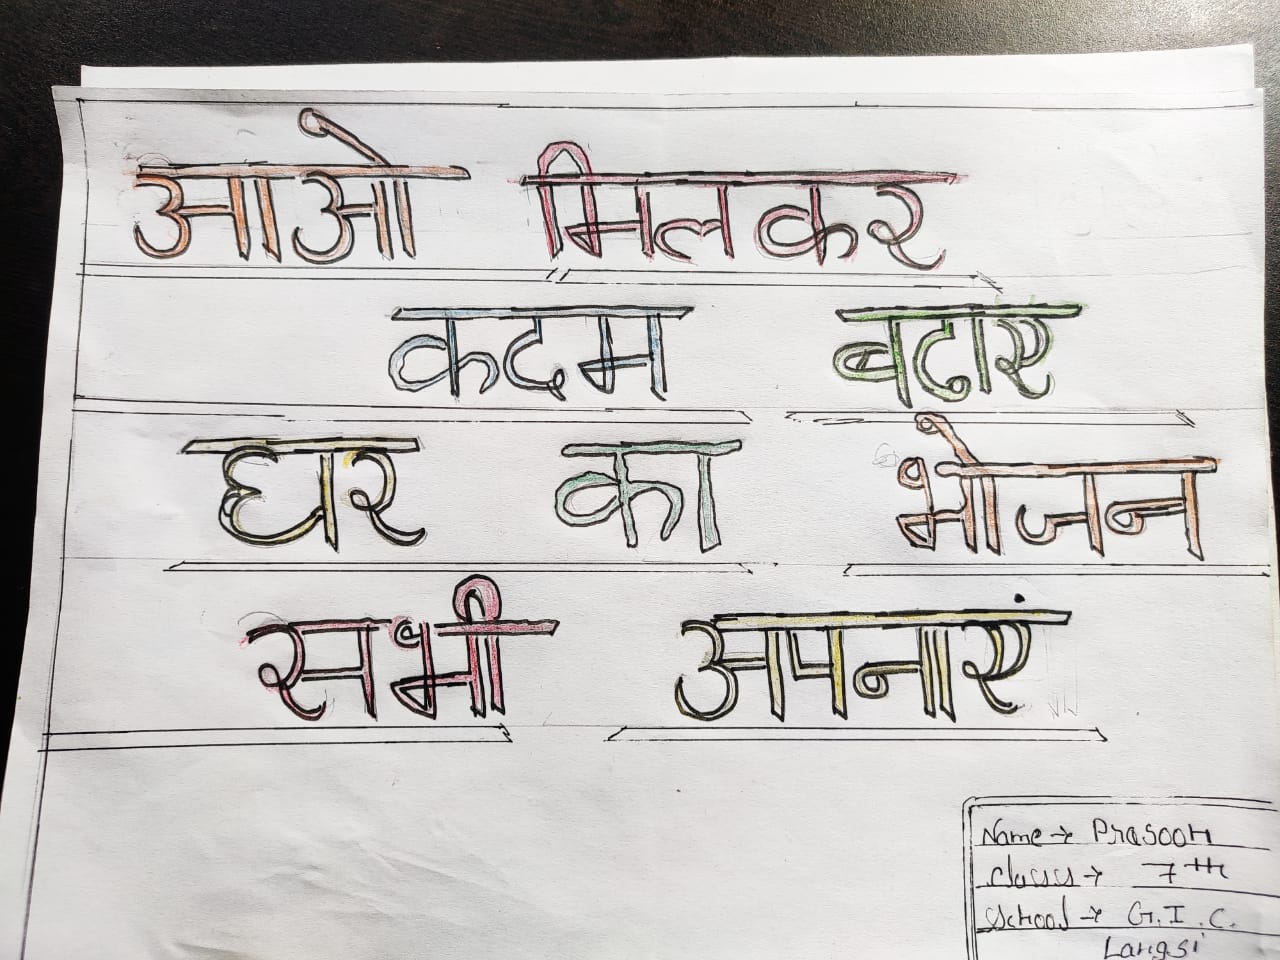 आओ मिलकर
कदम बढाए
घर का भोजन
सभी अपनाएं
Name → Prasoon
class → 7th
School → G.I.C.
Langsi